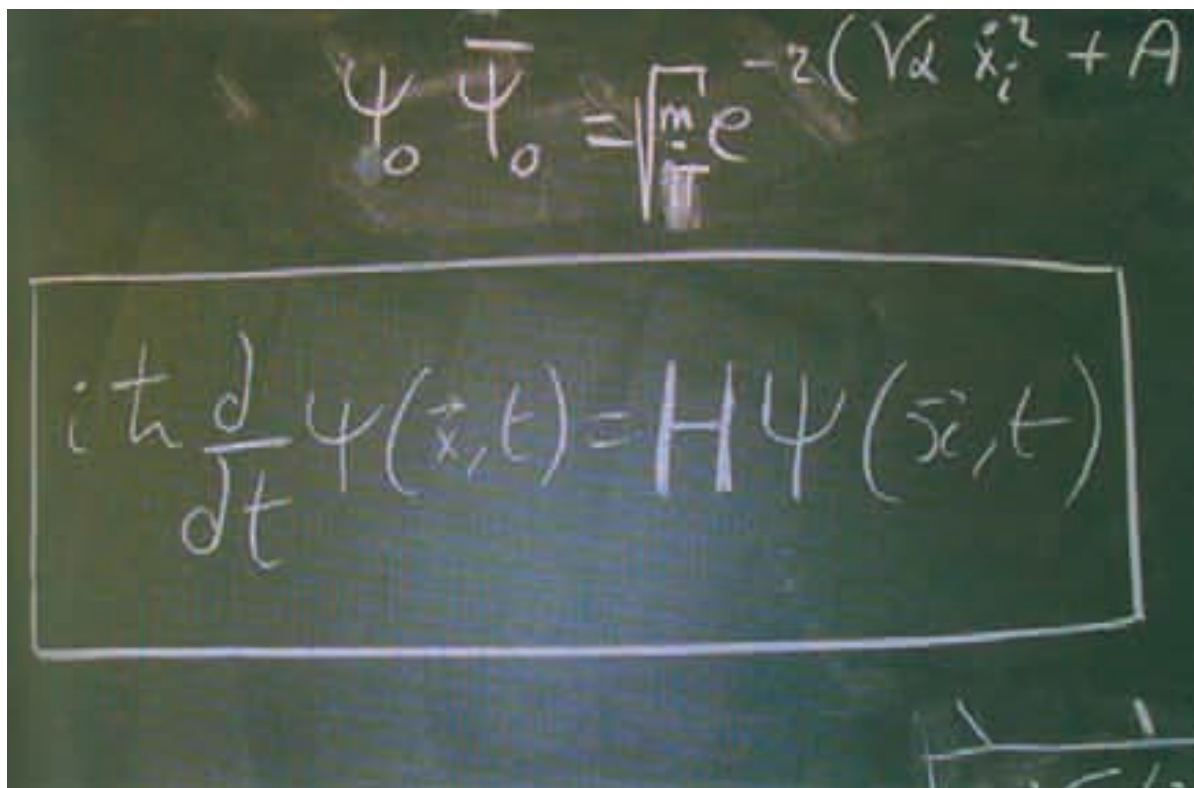 Ψ₀ Ψ̅₀ = √(m/π) e^(-2(√α ẋᵢ² + A
iħ d/dt Ψ(x⃗,t) = H Ψ(x⃗,t)